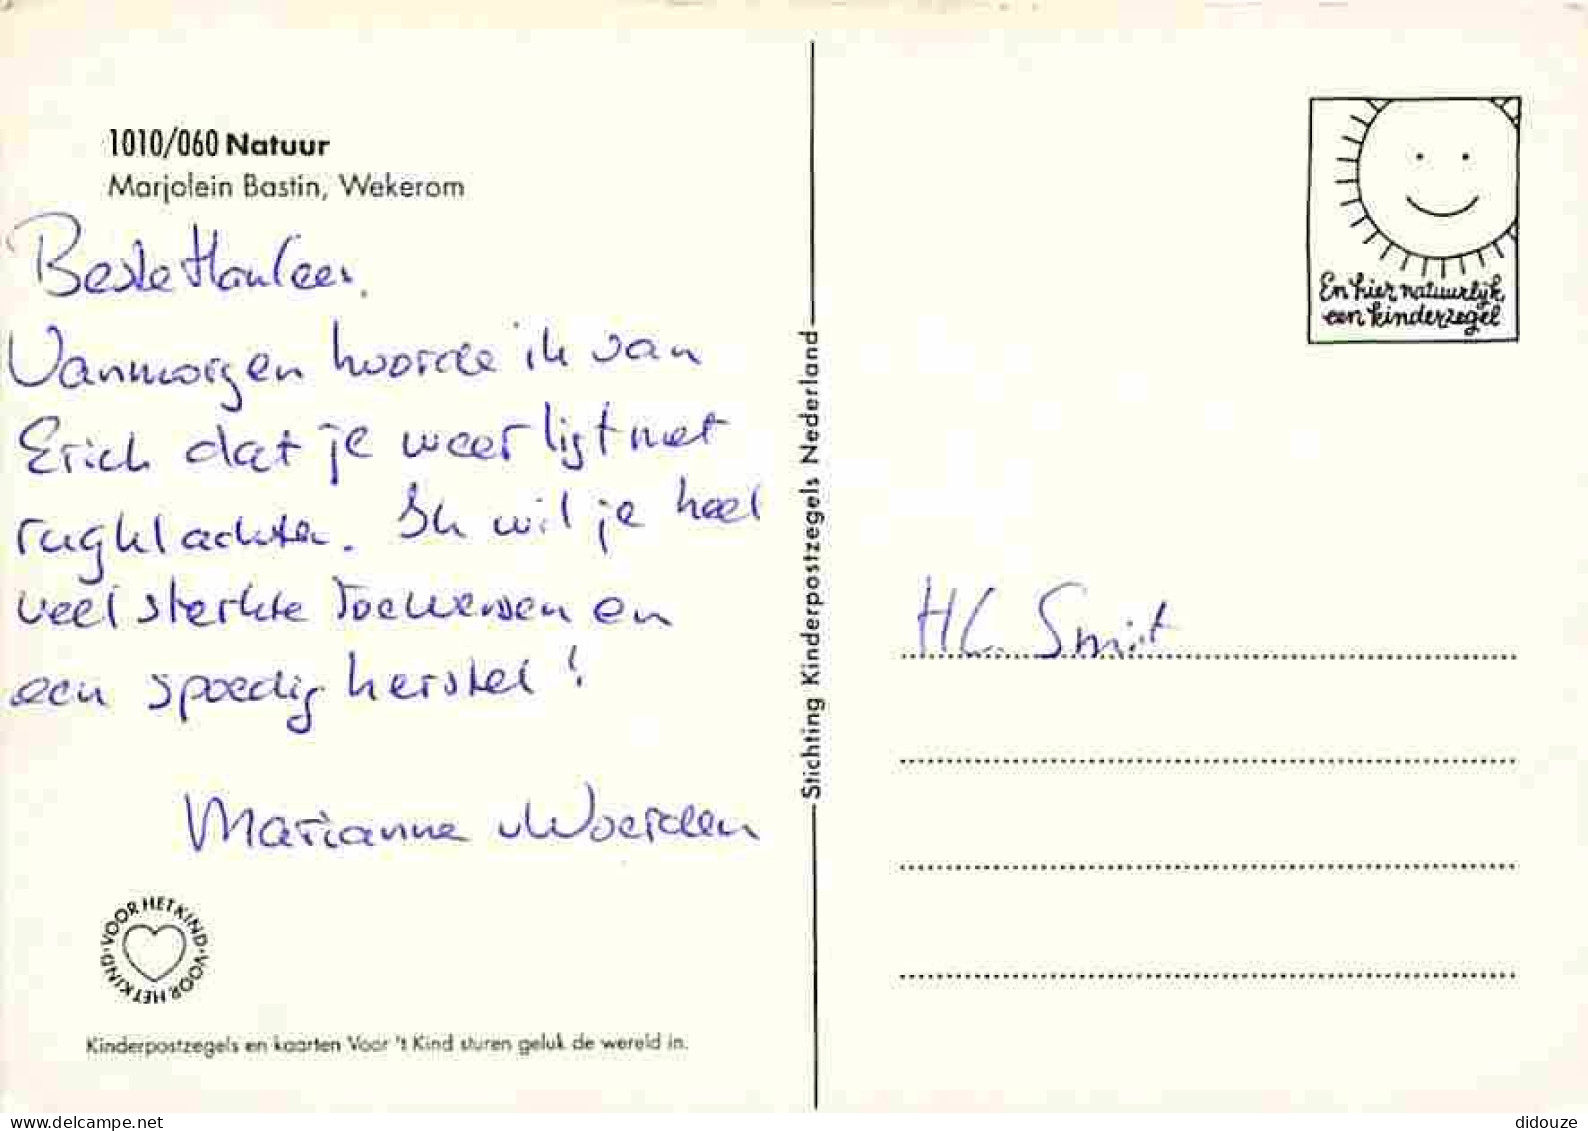 1010/060 Natuur
Marjolein Bastin, Wekerom
Beste Hanlees,
Vanmorgen hoorde ik van
Erich dat je weer ligt met
rugklachten. Ik wil je heel
veel sterkte toewensen en
een spoedig herstel!
Marianne v Woerden
VOOR HET KIND · VOOR HET KIND ·
Kinderpostzegels en kaarten Voor 't Kind sturen geluk de wereld in.
Stichting Kinderpostzegels Nederland
En hier natuurlijk
een kinderzegel
HC. Smit
delcampe.net
didouze